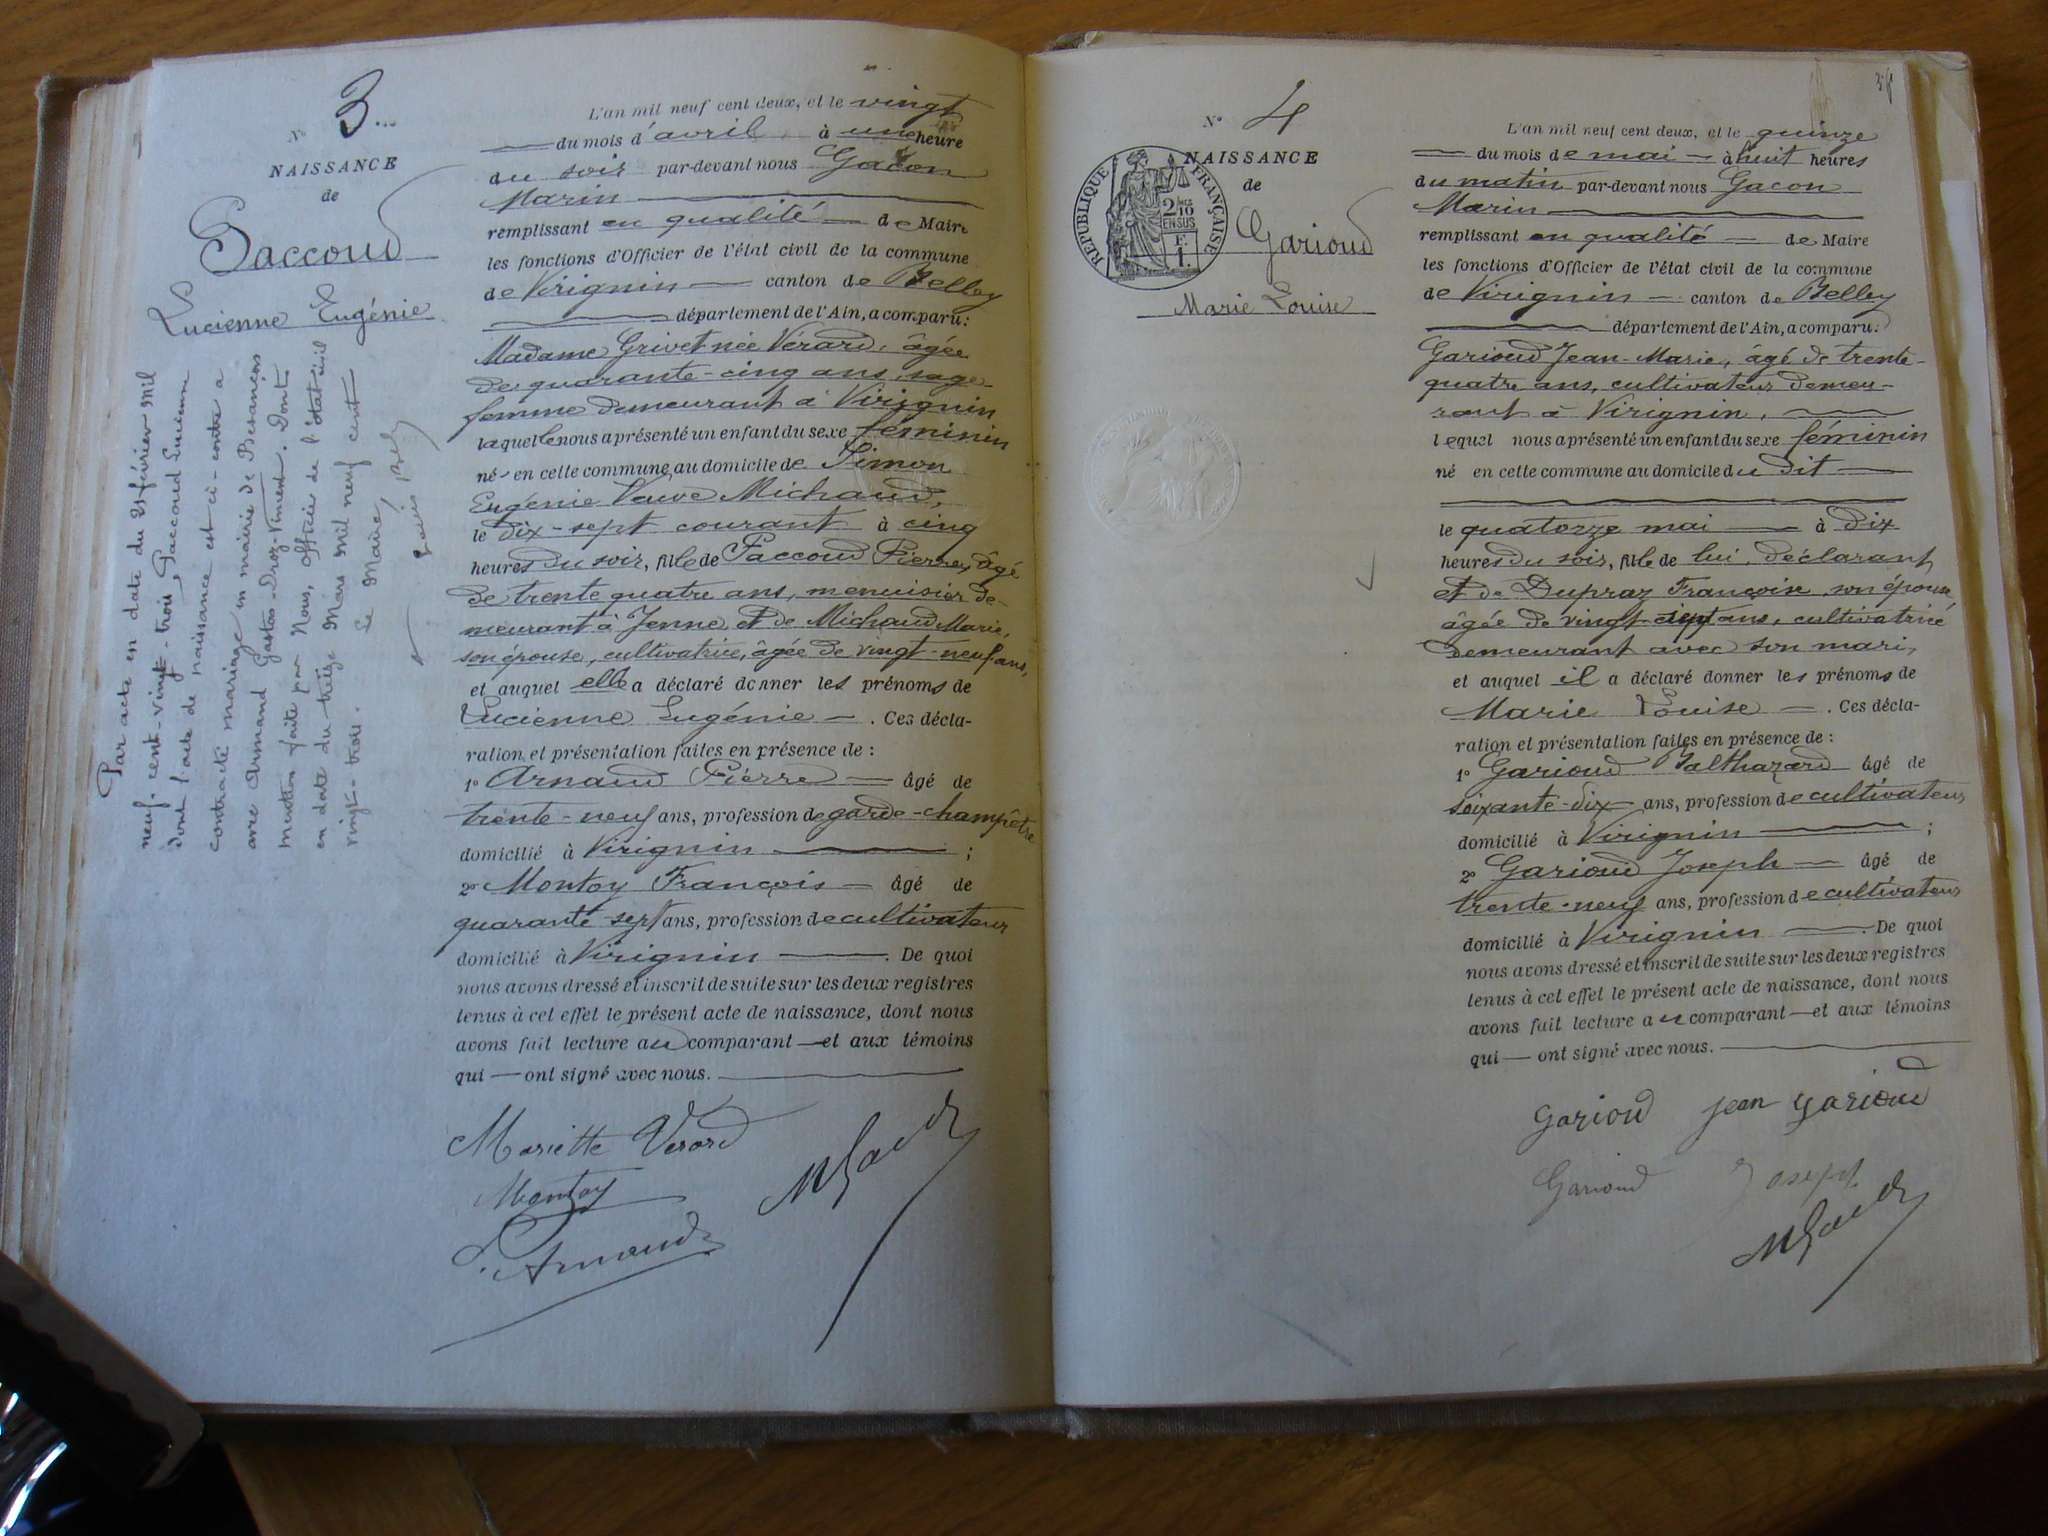 N° 3
NAISSANCE
de
Paccoud
Lucienne Eugénie
Par acte en date du 21 février mil
neuf cent vingt-trois, Paccoud Lucienne
dont l'acte de naissance est ci-contre a
contracté mariage en mairie de Besançon
avec Armand Gaston Droz-Vincent. Dont
mention faite par Nous, officier de l'état civil
en date du treize Mars mil neuf cent
vingt-trois.
Le Maire,
L'an mil neuf cent deux, et le vingt
du mois d'avril à une heure
du soir par-devant nous Gacon
Marin
remplissant en qualité de Maire
les fonctions d'Officier de l'état civil de la commune
de Virignin canton de Belley
département de l'Ain, a comparu:
Madame Grivet née Vérard, âgée
de quarante-cinq ans, sage-
femme demeurant à Virignin
laquelle nous a présenté un enfant du sexe féminin
né en cette commune au domicile de Simon
Eugénie Veuve Michaud,
le dix-sept courant à cinq
heures du soir, fille de Paccoud Pierre, âgé
de trente quatre ans, menuisier de-
meurant à Jenne et de Michaud Marie,
son épouse, cultivatrice, âgée de vingt-neuf ans,
et auquel elle a déclaré donner les prénoms de
Lucienne Eugénie. Ces décla-
ration et présentation faites en présence de :
1° Arnaud Pierre âgé de
trente-neuf ans, profession de garde-champêtre
domicilié à Virignin ;
2° Montoy François âgé de
quarante sept ans, profession de cultivateur
domicilié à Virignin. De quoi
nous avons dressé et inscrit de suite sur les deux registres
tenus à cet effet le présent acte de naissance, dont nous
avons fait lecture au comparant et aux témoins
qui ont signé avec nous.
Mariette Verard
Montoy
P. Arnaud
MGacon
N° 4
NAISSANCE
de
RÉPUBLIQUE FRANÇAISE
2/10
EN SUS
F.
1.
Garioud
Marie Louise
L'an mil neuf cent deux, et le quinze
du mois de mai à huit heures
du matin par-devant nous Gacon
Marin
remplissant en qualité de Maire
les fonctions d'Officier de l'état civil de la commune
de Virignin canton de Belley
département de l'Ain, a comparu:
Garioud Jean-Marie, âgé de trente-
quatre ans, cultivateur demeu-
rant à Virignin,
lequel nous a présenté un enfant du sexe féminin
né en cette commune au domicile du dit
le quatorze mai à dix
heures du soir, fille de lui, déclarant
et de Dupraz Françoise, son épouse
âgée de vingt-sept ans, cultivatrice
demeurant avec son mari,
et auquel il a déclaré donner les prénoms de
Marie Louise. Ces décla-
ration et présentation faites en présence de :
1° Garioud Balthazard âgé de
soixante-dix ans, profession de cultivateur
domicilié à Virignin ;
2° Garioud Joseph âgé de
trente-neuf ans, profession de cultivateur
domicilié à Virignin. De quoi
nous avons dressé et inscrit de suite sur les deux registres
tenus à cet effet le présent acte de naissance, dont nous
avons fait lecture au comparant et aux témoins
qui ont signé avec nous.
Garioud jean garioud
Garioud Joseph
MGacon